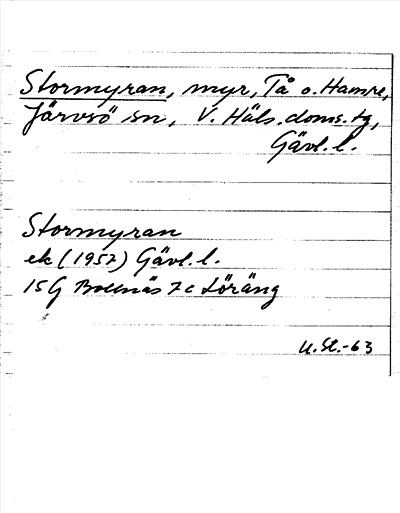 Stormyran, myr, Tå o. Hamre,
Järvsö sn, V. Häls. doms. tg,
Gävl. l.
Stormyran
ek (1957) Gävl. l.
15G Bollnäs 7c Löräng
U. St. -63